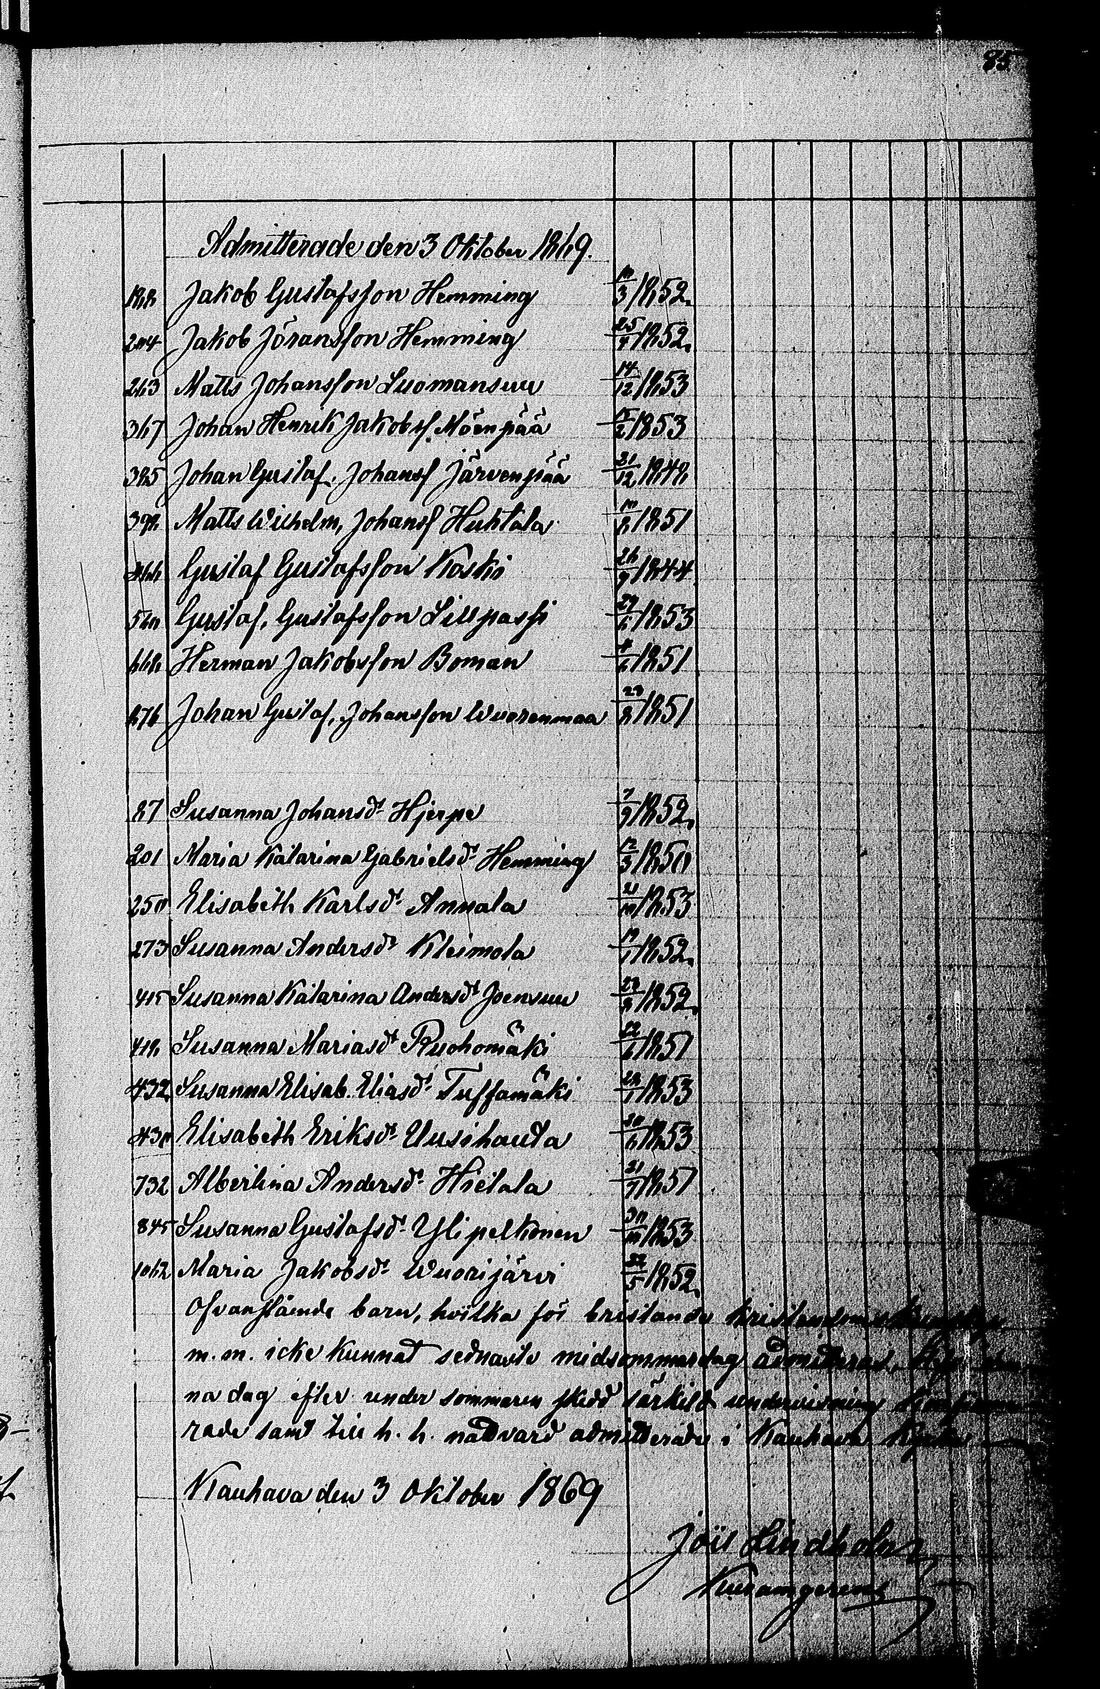 85
Admitterade den 3 Oktober 1869.
188 Jakob Gustafsson Hemming 10/3 1852.
204 Jakob Jöransson Hemming 25/4 1852.
263 Matts Johansson Luomansuu 14/12 1853
367 Johan Henrik Jakobss. Mäenpää 15/2 1853
385 Johan Gustaf, Johanss Järvenpää 21/12 1848
398 Matts Wilhelm, Johanss Huhtala 10/8 1851
466 Gustaf Gustafsson Koski 26/9 1844
560 Gustaf, Gustafsson Lillpassi 29/6 1853
668 Herman Jakobsson Boman 4/6 1851
876 Johan Gustaf, Johansson Wuorenmaa 23/8 1851
87 Susanna Johansd:r Hjerpe 7/9 1852.
201 Maria Katarina Gabrielsd:r Hemming 12/3 1850
250 Elisabeth Karlsd:r Annala 21/10 1853
273 Susanna Andersd:r Kleimola 19/1 1852.
415 Susanna Katarina Andersd:r Joensuu 23/8 1852.
418 Susanna Mariasd:r Ruohomäki 12/6 1851
432 Susanna Elisab. Eliasd:r Tussamäki 28/1 1853
430 Elisabeth Eriksd:r Uusihauta 20/6 1853
732 Albertina Andersd:r Hietala 21/7 1851
845 Susanna Gustafsd:r Ylipelkonen 30/10 1853
1062 Maria Jakobsd:r Wuorijärvi 22/5 1852.
Ofvanstående barn, hvilka för bristande
m. m. icke kunnat sednaste midsommardag admitteras,
na dag efter under sommaren skedd särskild undervisning
rade samt till h. h. nattvard admitterade i Kauhava Kyrka
Kauhava den 3 Oktober 1869
Joïl Lindholm